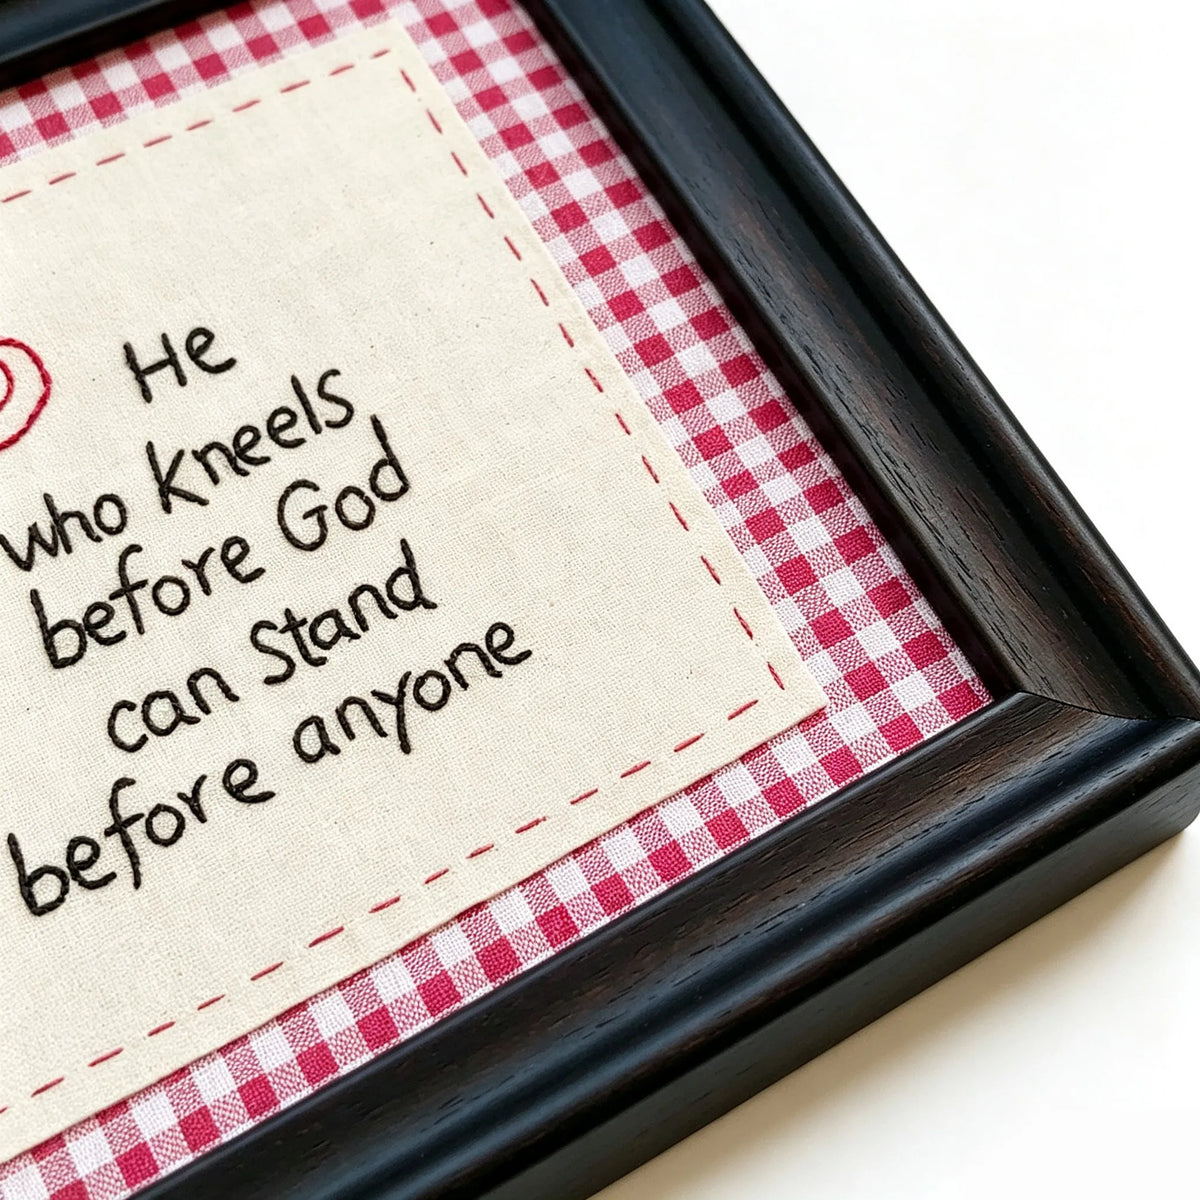 He
who kneels
before God
can Stand
before anyone